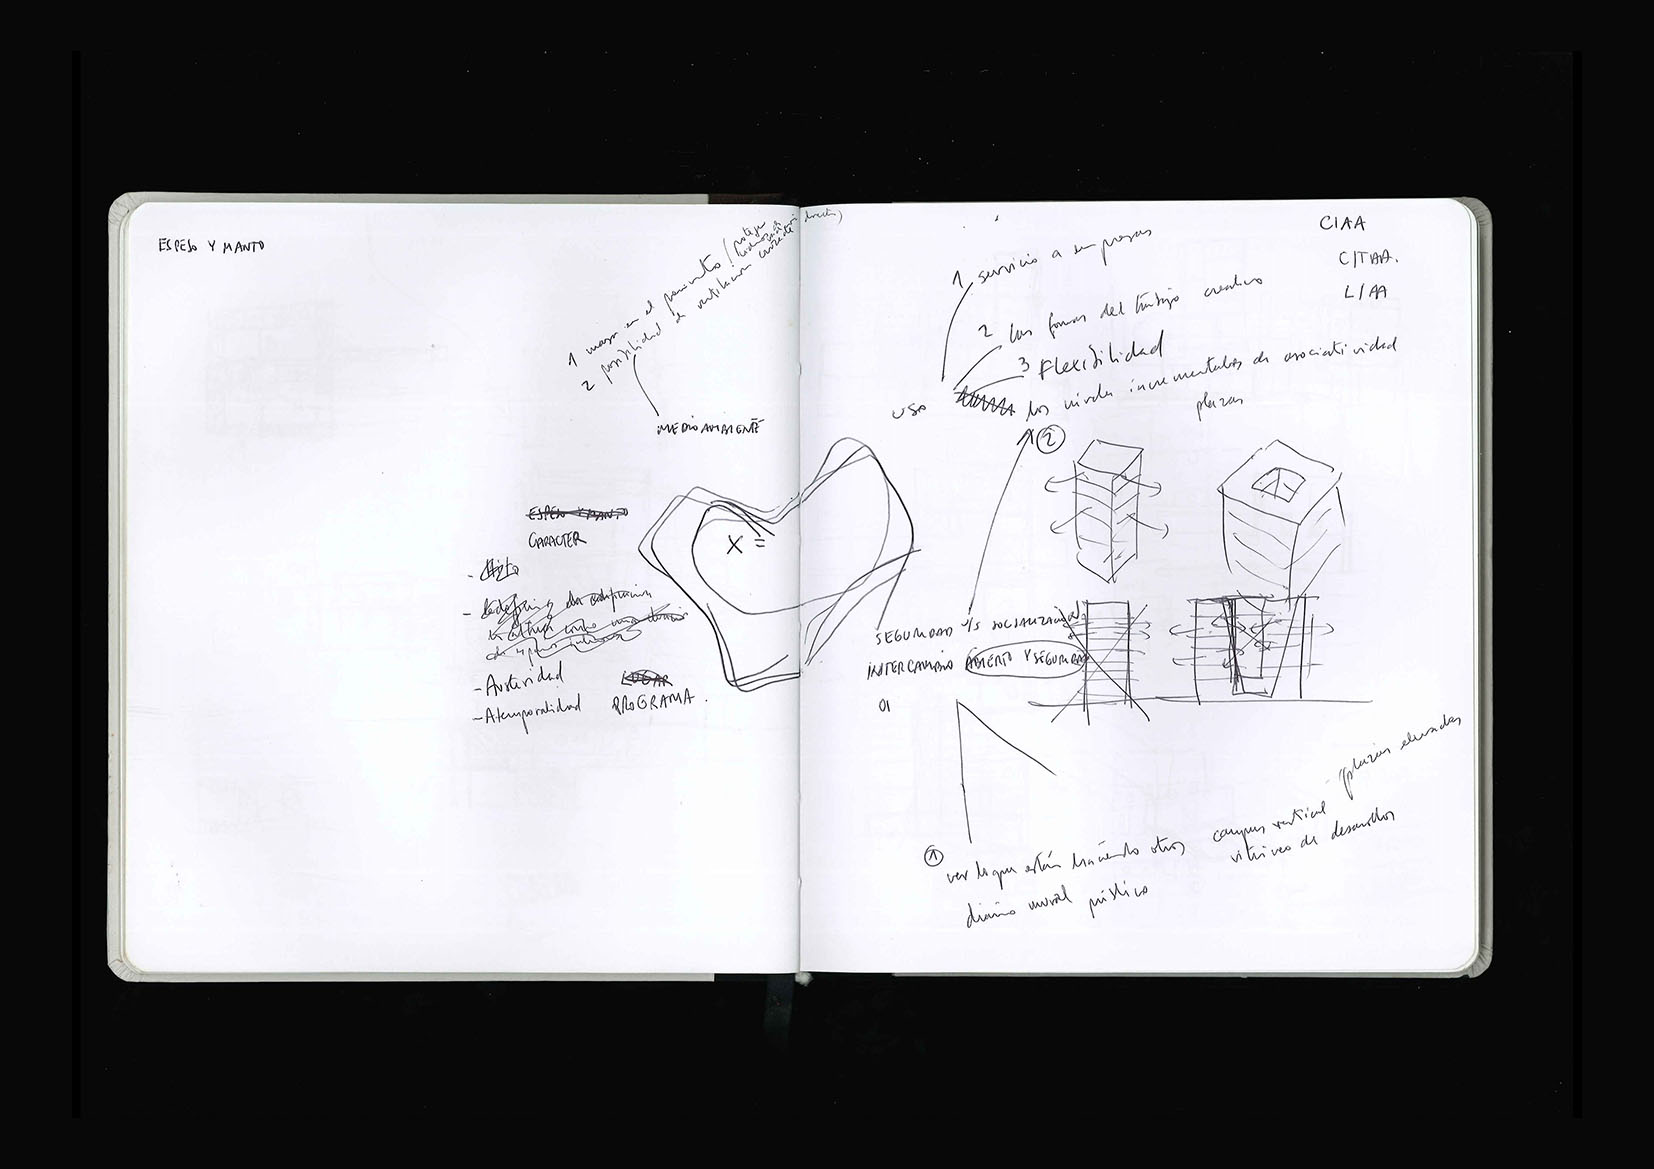 ESPESO Y MANTO
1 masa en el perímetro (proteger
directa)
2 posibilidad de ventilacion cruzada
MEDIO AMBIENTE
ESPESO Y MANTO
CARACTER
- Hito
X =
- Austeridad
- Atemporalidad
LUGAR
PROGRAMA.
CIAA
C/TAA.
L/AA
1 servicio a empresas
2 las formas del trabajo creativo
3 Flexibilidad
USO
los niveles incrementales de asociatividad
plazas
2
SEGURIDAD V/S SOCIALIZACION
INTERCAMBIO ABIERTO Y SEGURIDAD
01
1 ver lo que están haciendo otros
campus vertical - plazas elevadas
vitrinas de desarrollos
diario mural público